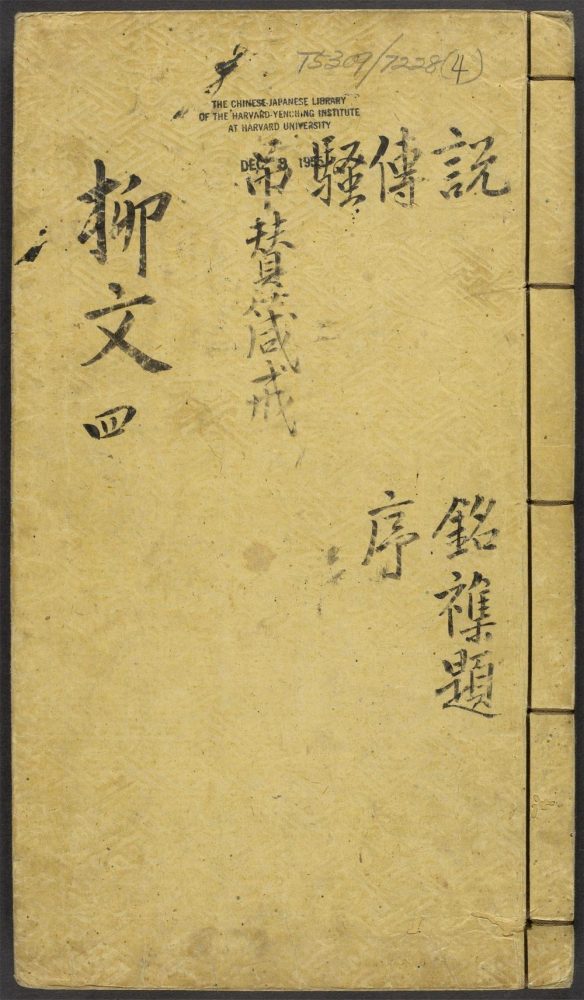 T5309/7228(4)
THE CHINESE-JAPANESE LIBRARY
OF THE HARVARD-YENCHING INSTITUTE
AT HARVARD UNIVERSITY
DEC 8 195
說
傳
騷
吊賛箴戒
銘襍題
序
柳文 四